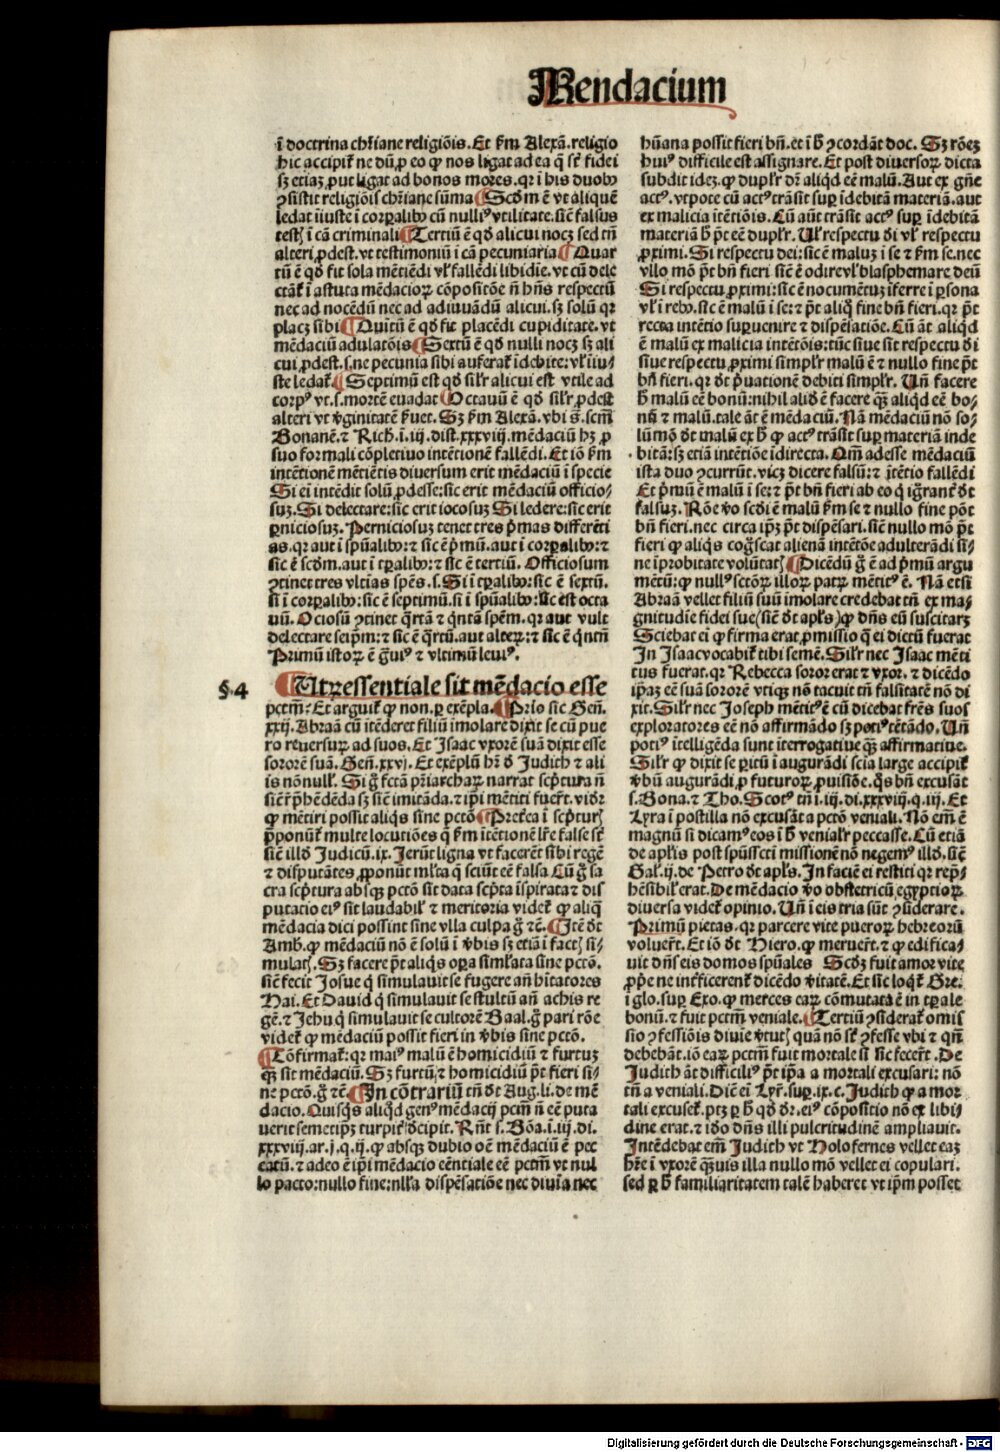 Mendacium
ī doctrina chr̄iane religiōis. Et s̄m Alexā. religio
hic accipit̄ ne dū ꝓ eo ꝙ nos ligat ad ea q̄ sūt fidei
sꝫ etiaꝫ ꝓut ligat ad bonos mores. qꝛ ī his duobꝰ
ꝯsistit religiōis chr̄iane sūma Scd̄m ē vt aliquē
ledat iiuste ī corꝑalibꝰ cū nulliꝰ vtilitate. sic̄ falsus
testis ī cā criminali Tertiū ē qd̄ alicui nocꝫ sed tn̄
alteri ꝓdest. vt testimoniū ī cā pecuniaria Quar
tū ē qd̄ fit sola mētiēdi vl̄ fallēdi libidie. vt cū dele
ctāt̄ ī astuta mēdacioꝝ cōpositōe n̄ hn̄s respectū
nec ad nocēdū nec ad adiuuādū alicui. sꝫ solū qꝛ
placꝫ sibi Quītū ē qd̄ fit placēdi cupiditate. vt
mēdaciū adulatōis Sextū ē qd̄ nulli nocꝫ sꝫ ali
cui ꝓdest. s. ne pecunia sibi auferat̄ īdebite: vl̄ iiu⸗
ste ledat̄. Septimū est qd̄ sil̄r alicui est vtile ad
corpꝰ vt. s. mortē euadat Octauū ē qd̄ sil̄r ꝓdest
alteri vt v̓ginitatē ẜuet. Sꝫ s̄m Alexā. vbi s̄. scm̄
Bonauē. ⁊ Rich. ī. iij. dist. xxxviij. mēdaciū hꝫ ꝓ
suo formali cōpletiuo intētionē fallēdi. Et iō s̄m
intētionē mētiētis diuersum erit mēdaciū ī specie
Si ei̅ intēdit solū ꝓdesse: sic erit mēdaciū officio⸗
suꝫ. Si delectare: sic erit iocosuꝫ Si ledere: sic erit
ꝑniciosuꝫ. Perniciosuꝫ tenet tres p̓mas differēti
as. qꝛ aut ī spūalibꝰ: ⁊ sic ē p̓mū. aut ī corꝑalibꝰ: ⁊
sic ē scd̄m. aut ī tꝑalibꝰ: ⁊ sic ē tertiū. Officiosum
ꝯtinet tres vltias spēs. s. Si ī tꝑalibꝰ: sic ē sextū.
si ī corꝑalibꝰ: sic ē septimū. si ī spūalibꝰ: sic est octa
uū. Ociosū ꝯtinet q̄rtā ⁊ q̄ntā spēm. qꝛ aut vult
delectare seip̄m: ⁊ sic ē q̄rtū. aut alteꝝ: ⁊ sic ē q̄ntū
Primū istoꝝ ē g̓uiꝰ ⁊ vltimū leuiꝰ.
§. 4 Utꝝ essentiale sit mēdacio esse
pctm̄? Et arguit̄ ꝙ non. ꝑ exēpla. Prīo sic Gen̄.
xxij. Abraā cū itēderet filiū imolare dixit se cū pue
ro reuersuꝝ ad suos. Et Isaac vxorē suā dixit esse
sororē suā. Gen̄. xxvj. Et exēplū hr̄ ð Judith ⁊ ali
is nōnull̄. Si g̓ fctā pr̄iarchaꝝ narrat scp̄tura n̄
sic̄ r̄p̄hēdēda sꝫ sic̄ imitāda. ⁊ ip̄i mētiti fuer̄t. vidr̄
ꝙ mētiri possit aliqs sine pctō Preterea ī scp̄turis
ꝓponūt̄ multe locutiōes q̄ s̄m ītētionē lr̄e false sūt
sic̄ illd̄ Judicū. ix. Jerūt ligna vt facerēt sibi regē
⁊ disputātes, ꝓponūt ml̄ta q̄ sciūt eē falsa Cū g̓ sa
cra scp̄tura absqꝫ pctō sit data scp̄ta īspirata ⁊ dis
putatio eiꝰ sit laudabil̄ ⁊ meritoria videt̄ ꝙ aliq̄
mēdacia dici possint sine vlla culpa g̓ ⁊c̄. Itē dt̄
Amb. ꝙ mēdaciū nō ē solū ī v̓bis sꝫ etiā ī factis si⸗
mulatis. Sꝫ facere pt̄ aliqs oꝑa siml̄ata sine pctō.
sic̄ fecit Josue q̓ simulauit se fugere an̄ hītatores
Hai. Et Dauid q̓ simulauit se stultū an̄ achis re
gē. ⁊ Jehu q̓ simulauit se cultorē Baal. g̓ pari rōe
videt̄ ꝙ mēdaciū possit fieri in v̓bis sine pctō.
Cōfirmat̄: qꝛ maiꝰ malū ē homicidiū ⁊ furtuꝫ
qꝫ sit mēdaciū. Sꝫ furtū ⁊ homicidiū pt̄ fieri si⸗
ne pctō. g̓ ⁊c̄. In cōtrariū tn̄ dt̄ Aug. li. de mē
dacio. Quisqs aliqd̄ genꝰ mēdacij pcm̄ n̄ eē puta
uerit semetip̄ꝫ turpit̓ decipit. Rn̄t s. Bōa. ī. iij. di.
xxxviij. ar. j. q. ij. ꝙ absqꝫ dubio oē mēdaciū ē pec
catū. ⁊ adeo ē ip̄i mēdacio eēntiale eē pctm̄ vt nul
lo pacto: nullo fine: nll̄a dispēsatiōe nec diuīa nec
hūana possit fieri bn̄. et ī ħ ꝯcordāt doc. Sꝫ rōeꝫ
huiꝰ difficile est assignare. Et post diuersoꝝ dicta
subdit ideꝫ. ꝙ dupl̄r dr̄ aliqd eē malū. Aut ex gn̄e
actꝰ. vtpote cū actꝰ trāsit suꝑ īdebitā materiā. aut
ex malicia itētiōis. Cū aūt trāsit actꝰ suꝑ īdebitā
materiā ħ pt̄ eē dupl̄r. Ul̄ respectu ði vl̄ respectu
ꝓximi. Si respectu dei: sic ē maluꝫ ī se ⁊ s̄m se. nec
vllo mō pt̄ bn̄ fieri sic̄ ē odire vl̄ blasphemare deū
Si respectu ꝓximi: sic ē nocumētuꝫ iferre ī ꝑsona
vl̄ ī rebꝰ. sic ē malū ī se: ⁊ pt̄ aliq̄ fine bn̄ fieri. qꝛ pt̄
recta intētio suꝑuenire ⁊ dispēsatiōe. Cū āt aliqd
ē malū ex malicia intētōis: tūc siue sit respectu ði
siue respectu ꝓximi simpl̄r malū ē ⁊ nullo fine pt̄
bn̄ fieri. qꝛ dt̄ p̓uationē debiti simpl̄r. Un̄ facere
ħ malū eē bonū: nihil aliđ ē facere qꝫ aliqd eē bo⸗
nū ⁊ malū. tale āt ē mēdaciū. Nā mēdaciū nō so⸗
lū mō dt̄ malū ex ħ ꝙ actꝰ trāsit suꝑ materiā inde
bitā: sꝫ etiā intētiōe īdirecta. Qm̄ adesse mēdaciū
ista duo ꝯcurrūt. vicꝫ dicere falsū: ⁊ ītētio fallēdi
Et p̓mū ē malū ī se: ⁊ pt̄ bn̄ fieri ab eo q̓ ignorāt̓ dt̄
falsuꝫ. Rōe v̓o scdi ē malū s̄m se ⁊ nullo fine pōt
bn̄ fieri. nec circa ip̄ꝫ pt̄ dispēsari. sic̄ nullo mō pt̄
fieri ꝙ aliqs cog̓scat alienā intētōe adulterādi si⸗
ne īprobitate volūtatis Dicēdū g̓ ē ad p̓mū argu
mētū: ꝙ nullꝰ sctōꝝ illoꝝ patꝝ mētitꝰ ē. Nā etsi
Abraā vellet filiū suū imolare credebat tn̄ ex ma⸗
gnitudīe fidei sue (sic̄ dt̄ apl̄s) ꝙ dn̄s eū suscitarꝫ
Sciebat ei̅ ꝙ firma erat ꝓmissio q̄ ei dictū fuerat
In Isaac vocabit̄ tibi semē. Sil̄r nec Isaac mēti
tus fuerat. qꝛ Rebecca soror erat ⁊ vxor. ⁊ dicēdo
ip̄aꝫ eē suā sororē vtiqꝫ nō tacuit tn̄ falsitatē nō di
xit. Sil̄r nec Joseph mētitꝰ ē cū dicebat fr̄es suos
exploratores eē nō affirmādo sꝫ potiꝰ tētādo. Un̄
potiꝰ itelligēda sunt iterrogatiue qꝫ affirmatiue.
Sil̄r ꝙ dixit se ꝑitū ī augurādi scīa large accipit̄
v̓bū augurādi ꝓ futuroꝝ ꝓuisiōe. q̄s bn̄ excusāt
s. Bona. ⁊ Tho. Scotꝰ tn̄ ī. iij. di. xxxviij. q. iij. Et
Lyra ī postilla nō excusāt a pctō veniali. Nō em̄ ē
magnū si dicamꝰ eos ī ħ venialr̄ peccasse. Cū etiā
de apl̄is post spūsscti missionē nō negemꝰ illd̄. sic̄
Gal. ij. de Petro dt̄ apl̄s. In faciē ei restiti qꝛ rep̄⸗
hēsibil̄ erat. De mēdacio v̓o obstetricū egyptioꝝ
diuersa videt̄ opinio. Un̄ ī eis tria sūt ꝯsiderare.
Primū pietas. qꝛ parcere vite pueroꝝ hebreorū
voluer̄t. Et iō dt̄ Hiero. ꝙ meruer̄t. ⁊ ꝙ edifica⸗
uit dn̄s eis domos spūales Scd̄ꝫ fuit amor vite
ꝓp̓e ne intficerent̄ dicēdo v̓itatē. Et sic loqt̄ Gre.
ī glo. suꝑ Exo. ꝙ merces eaꝝ cōmutata ē in tꝑale
bonū. ⁊ fuit pctm̄ veniale. Tertiū ꝯsiderat̄ omis
sio ꝯfessiōis diuīe v̓tutis quā nō sūt ꝯfesse vbi ⁊ qn̄
debebāt. iō eaꝝ pctm̄ fuit mortale si sic fecer̄t. De
Judith āt difficiliꝰ pt̄ ip̄a a mortali excusari: nō
tn̄ a veniali. Dic̄ ei̅ Lyr̄. suꝑ. ix. c. Judith ꝙ a mor
tali excuset̄. ptꝫ ꝑ ħ qd̄ dr̄. eiꝰ cōpositio nō ex libi⸗
dine erat. ⁊ iðo dn̄s illi pulcritudinē ampliauit.
Intēdebat em̄ Judith vt Holofernes vellet eaꝫ
hr̄e ī vxorē qꝫuis illa nullo mō vellet ei copulari.
sed ꝑ ħ familiaritatem talē haberet vt ip̄m posset
Digitalisierung gefördert durch die Deutsche Forschungsgemeinschaft - DFG